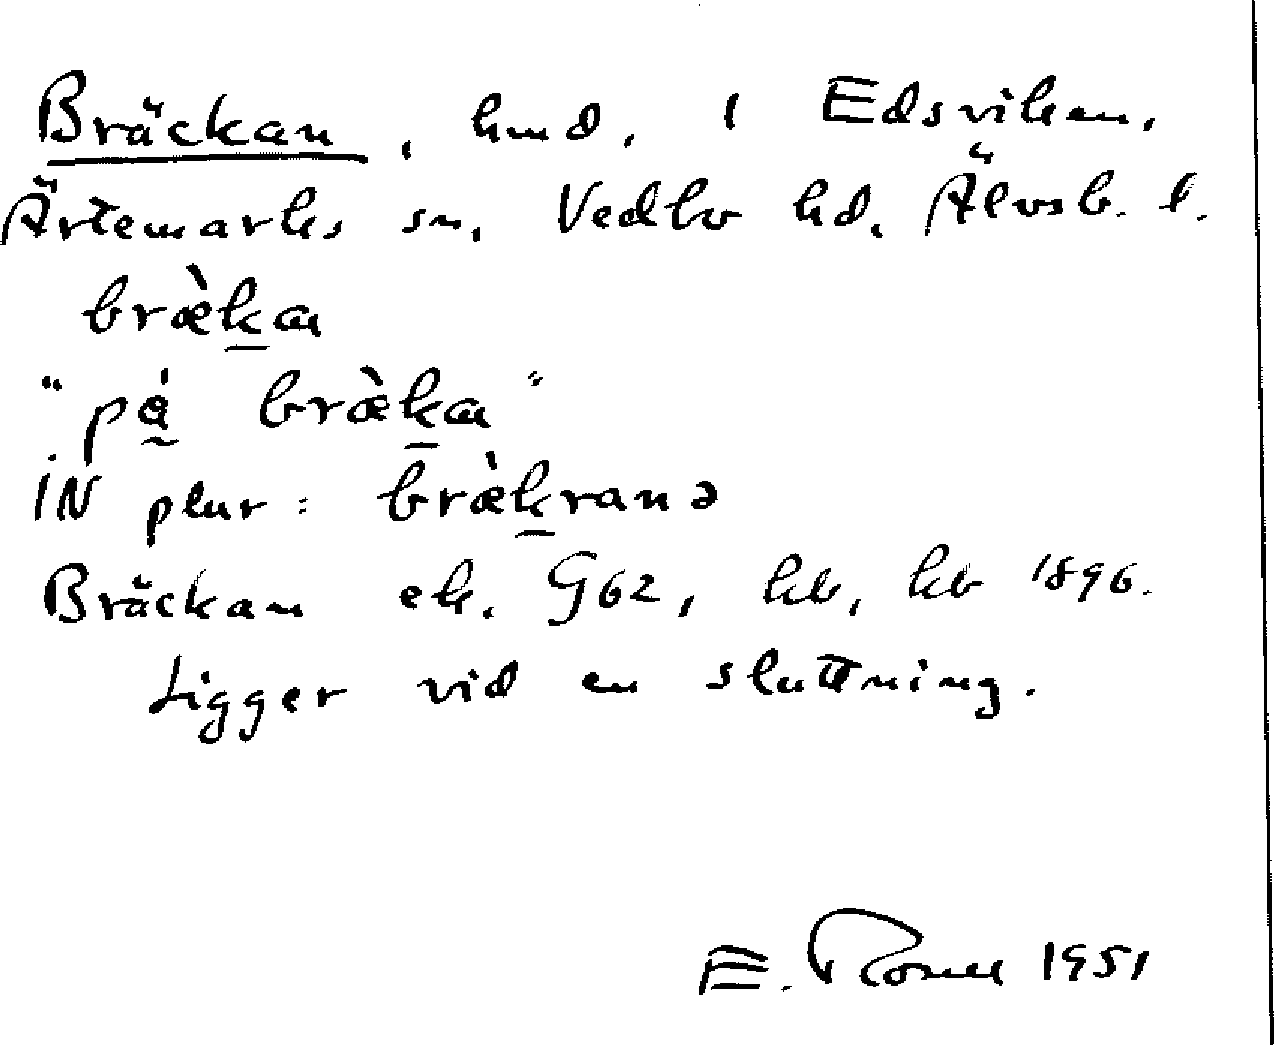 Bräckan, hmd, 1 Edsviken,
Ärtemarks sn, Vedbo hd, Älvsb. l.
bræ̀ka
"på bræ̀ka"
IN plur: bræ̀kranə
Bräckan ek. G62, hb, kb 1896.
Ligger vid en sluttning.
E. 1951